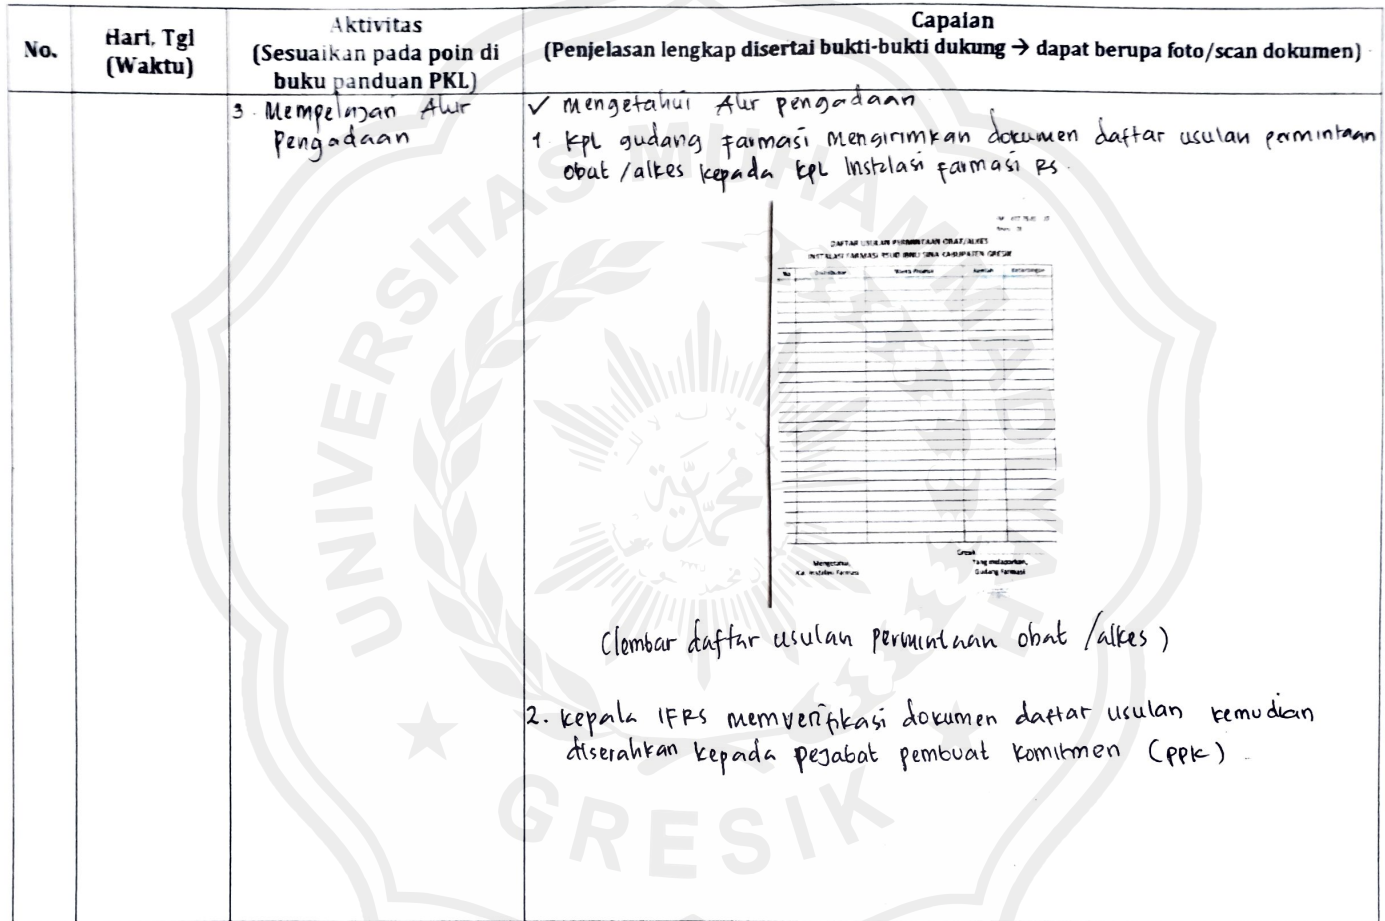 No.
Hari, Tgl
(Waktu)
Aktivitas
(Sesuaikan pada poin di
buku panduan PKL)
Capaian
(Penjelasan lengkap disertai bukti-bukti dukung → dapat berupa foto/scan dokumen)
3. Mempelajari Alur
Pengadaan
✓ Mengetahui Alur pengadaan
1. Kpl gudang farmasi mengirimkan dokumen daftar usulan permintaan
obat /alkes kepada kpl Instalasi farmasi RS.
DAFTAR USULAN PERMINTAAN OBAT/ALKES
INSTALASI FARMASI RSUD IBNU SINA KABUPATEN GRESIK
No Distributor Nama Produk Jumlah Keterangan
Gresik
Mengetahui,
Ka. Instalasi Farmasi
Yang melaporkan,
Gudang Farmasi
(lembar daftar usulan permintaan obat /alkes)
2. Kepala IFRS memverifikasi dokumen daftar usulan kemudian
diserahkan kepada pejabat pembuat komitmen (PPK).
UNIVERSITAS MUHAMMADIYAH
GRESIK